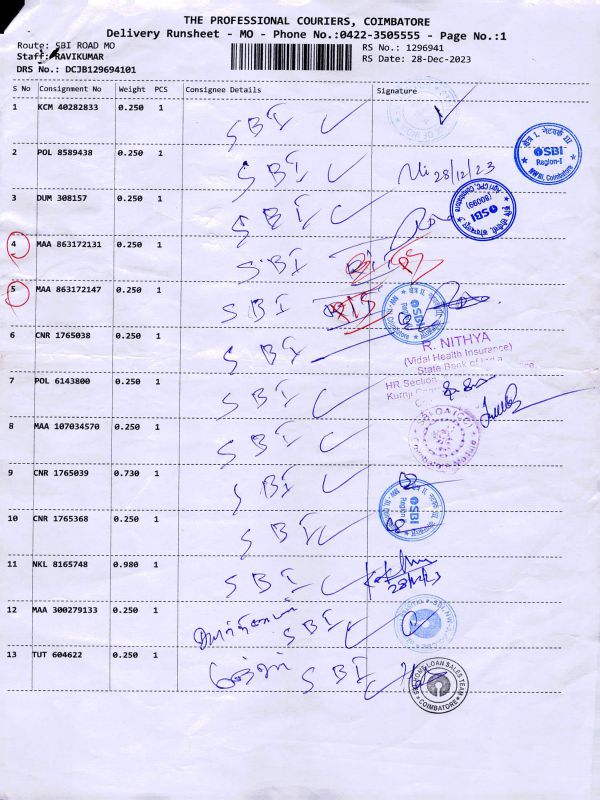 THE PROFESSIONAL COURIERS, COIMBATORE
Delivery Runsheet - MO - Phone No.:0422-3505555 - Page No.:1
Route: SBI ROAD MO
RS No.: 1296941
Staff: RAVIKUMAR
RS Date: 28-Dec-2023
DRS No.: DCJB129694101
S No Consignment No Weight PCS Consignee Details Signature
1 KCM 40282833 0.250 1 SBI
2 POL 8589438 0.250 1 SBI 28/12/23
SBI
Region-I
3 DUM 308157 0.250 1 SBI
SBI
4 MAA 863172131 0.250 1 SBI
5 MAA 863172147 0.250 1 SBI
SBI
6 CNR 1765038 0.250 1 SBI
R. NITHYA
(Vidal Health Insurance)
State Bank of
HR Section
7 POL 6143800 0.250 1 SBI
8 MAA 107034570 0.250 1 SBI
9 CNR 1765039 0.730 1 SBI
SBI
10 CNR 1765368 0.250 1 SBI
11 NKL 8165748 0.980 1 SBI
12 MAA 300279133 0.250 1 SBI
13 TUT 604622 0.250 1 SBI
LOAN SALES TEAM
COIMBATORE